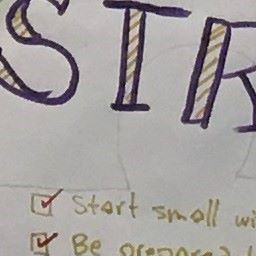 STR
Start small wi
Be prepared